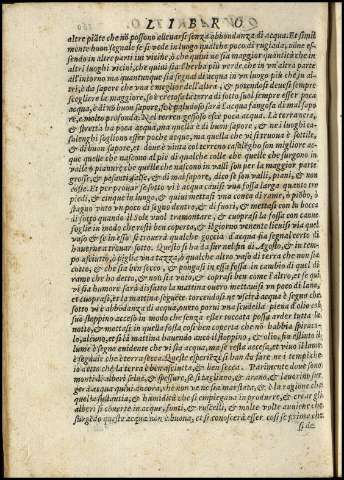 LIBRO
altre piãte che nõ possono alleuarsi senza abbondanza di acqua. Et simil
mente buon segnale se si vede in luogo qualche poco di rugiada, nõ ne es-
sendo in altre parti iui vicine, ò che quiui ne sia maggior quantità che in
altri luoghi vicini, che quiui sia l'herba più verde che in vn'altra parte
all'intorno ma quantunque sia segnal di acqua in vn luogo più ch'in al
tri, è da sapere che vna è meglior dell'altra, & potendosi deuesi sempre
scogliere la maggiore, & è certo che la terra di sotto suol sempre esser poca
acqua, & di nõ buon sapore, se è paludoso sarà l'acqua fangosa di mal sapo
re, & molto profonda. Nel terren gessoso esce poca acqua. Là terranera,
& stretta ha poca acqua, ma quella è di buon sapore. &
solenghi sogliono esser poche acque, ma quelle che vi si truoua è sottile,
& di buon sapore, et donde vn'a col terreno cascalgho son migliori le ac
que quelle che nascono al piè di qualche colle che quelle che surgono in
valli & pianure che quelle che nascono in valli son per la maggior parte
grosse, & pesanti, false, & di mal sapore, dico se son valli, piani, & non
coste. Et per prouar se sotto vi è acqua cauisi vna fossa larga quanto tre
piedi, & cinque in lungo, & quiui mettasi vna conca di rame, ò piõbo, ò
stagno vnto vn poco di signo dentro, & di fuori, & mettasi con la bocca
di sotto quando il Sole vuol tramontare, & cuoprasi la fossa con canne
foglie in modo che resti ben coperta, & il giorno venente lieuisi via quel
vaso & se in esso si trouerà qualche goccia d'acqua sia segnal certo di
hauerne a trouar sotto. Questo si ha da far nel fin di Agosto, & in tem-
po asciutto, ò piglia vna tazza, ò qualche altro vaso di terra che non sia
cotto, & che sia ben secco, & pongasi in essa fossa in cambio di quel di
rame che ho detto, & non sia vnto, & coprasi ben come l'altro, et se quì
vi sia humore sarà disfatto la mattina ouero mettauisi vn poco di lana,
et cuoprasi, et la mattina seguẽte torcendosi ne vscirà acqua è segno che
sotto vi è abbõdanza di acqua, ouero porui vna scudella piena d'olio con
suo stoppino acceso in modo che senza esser toccata possa arder tutta la
notte, & mettasi in quella fossa così ben coperta che nõ habbia spirati-
lo, alcuno, et si la mattina hauendo anco il stoppino, & olio, sia estinto il
lume è segno euidente che vi sia acqua, ma se resta acceso, et viuo il lume
è segnale che è terra secca. Queste esperiẽze si han da fare ne i tempi che
io ò detto ché la terra è ben asciutta, & ben secca. Parimente doue sono
monti di alberi folti, & spessi, se si tagliano, & arano, & lauorin sur-
ger d'acqua quini donera, che non ve ne sia mai stata, & è la ragione che
quella sustantia, & humidità che si impiegana in produrre, & crear gli
alberi si conuerte in acqua, fonti, & ruscelli, & molte volte auuiene che
surgẽdo questa acqua non è buona, et si conoscerà esser così se prima che
si de